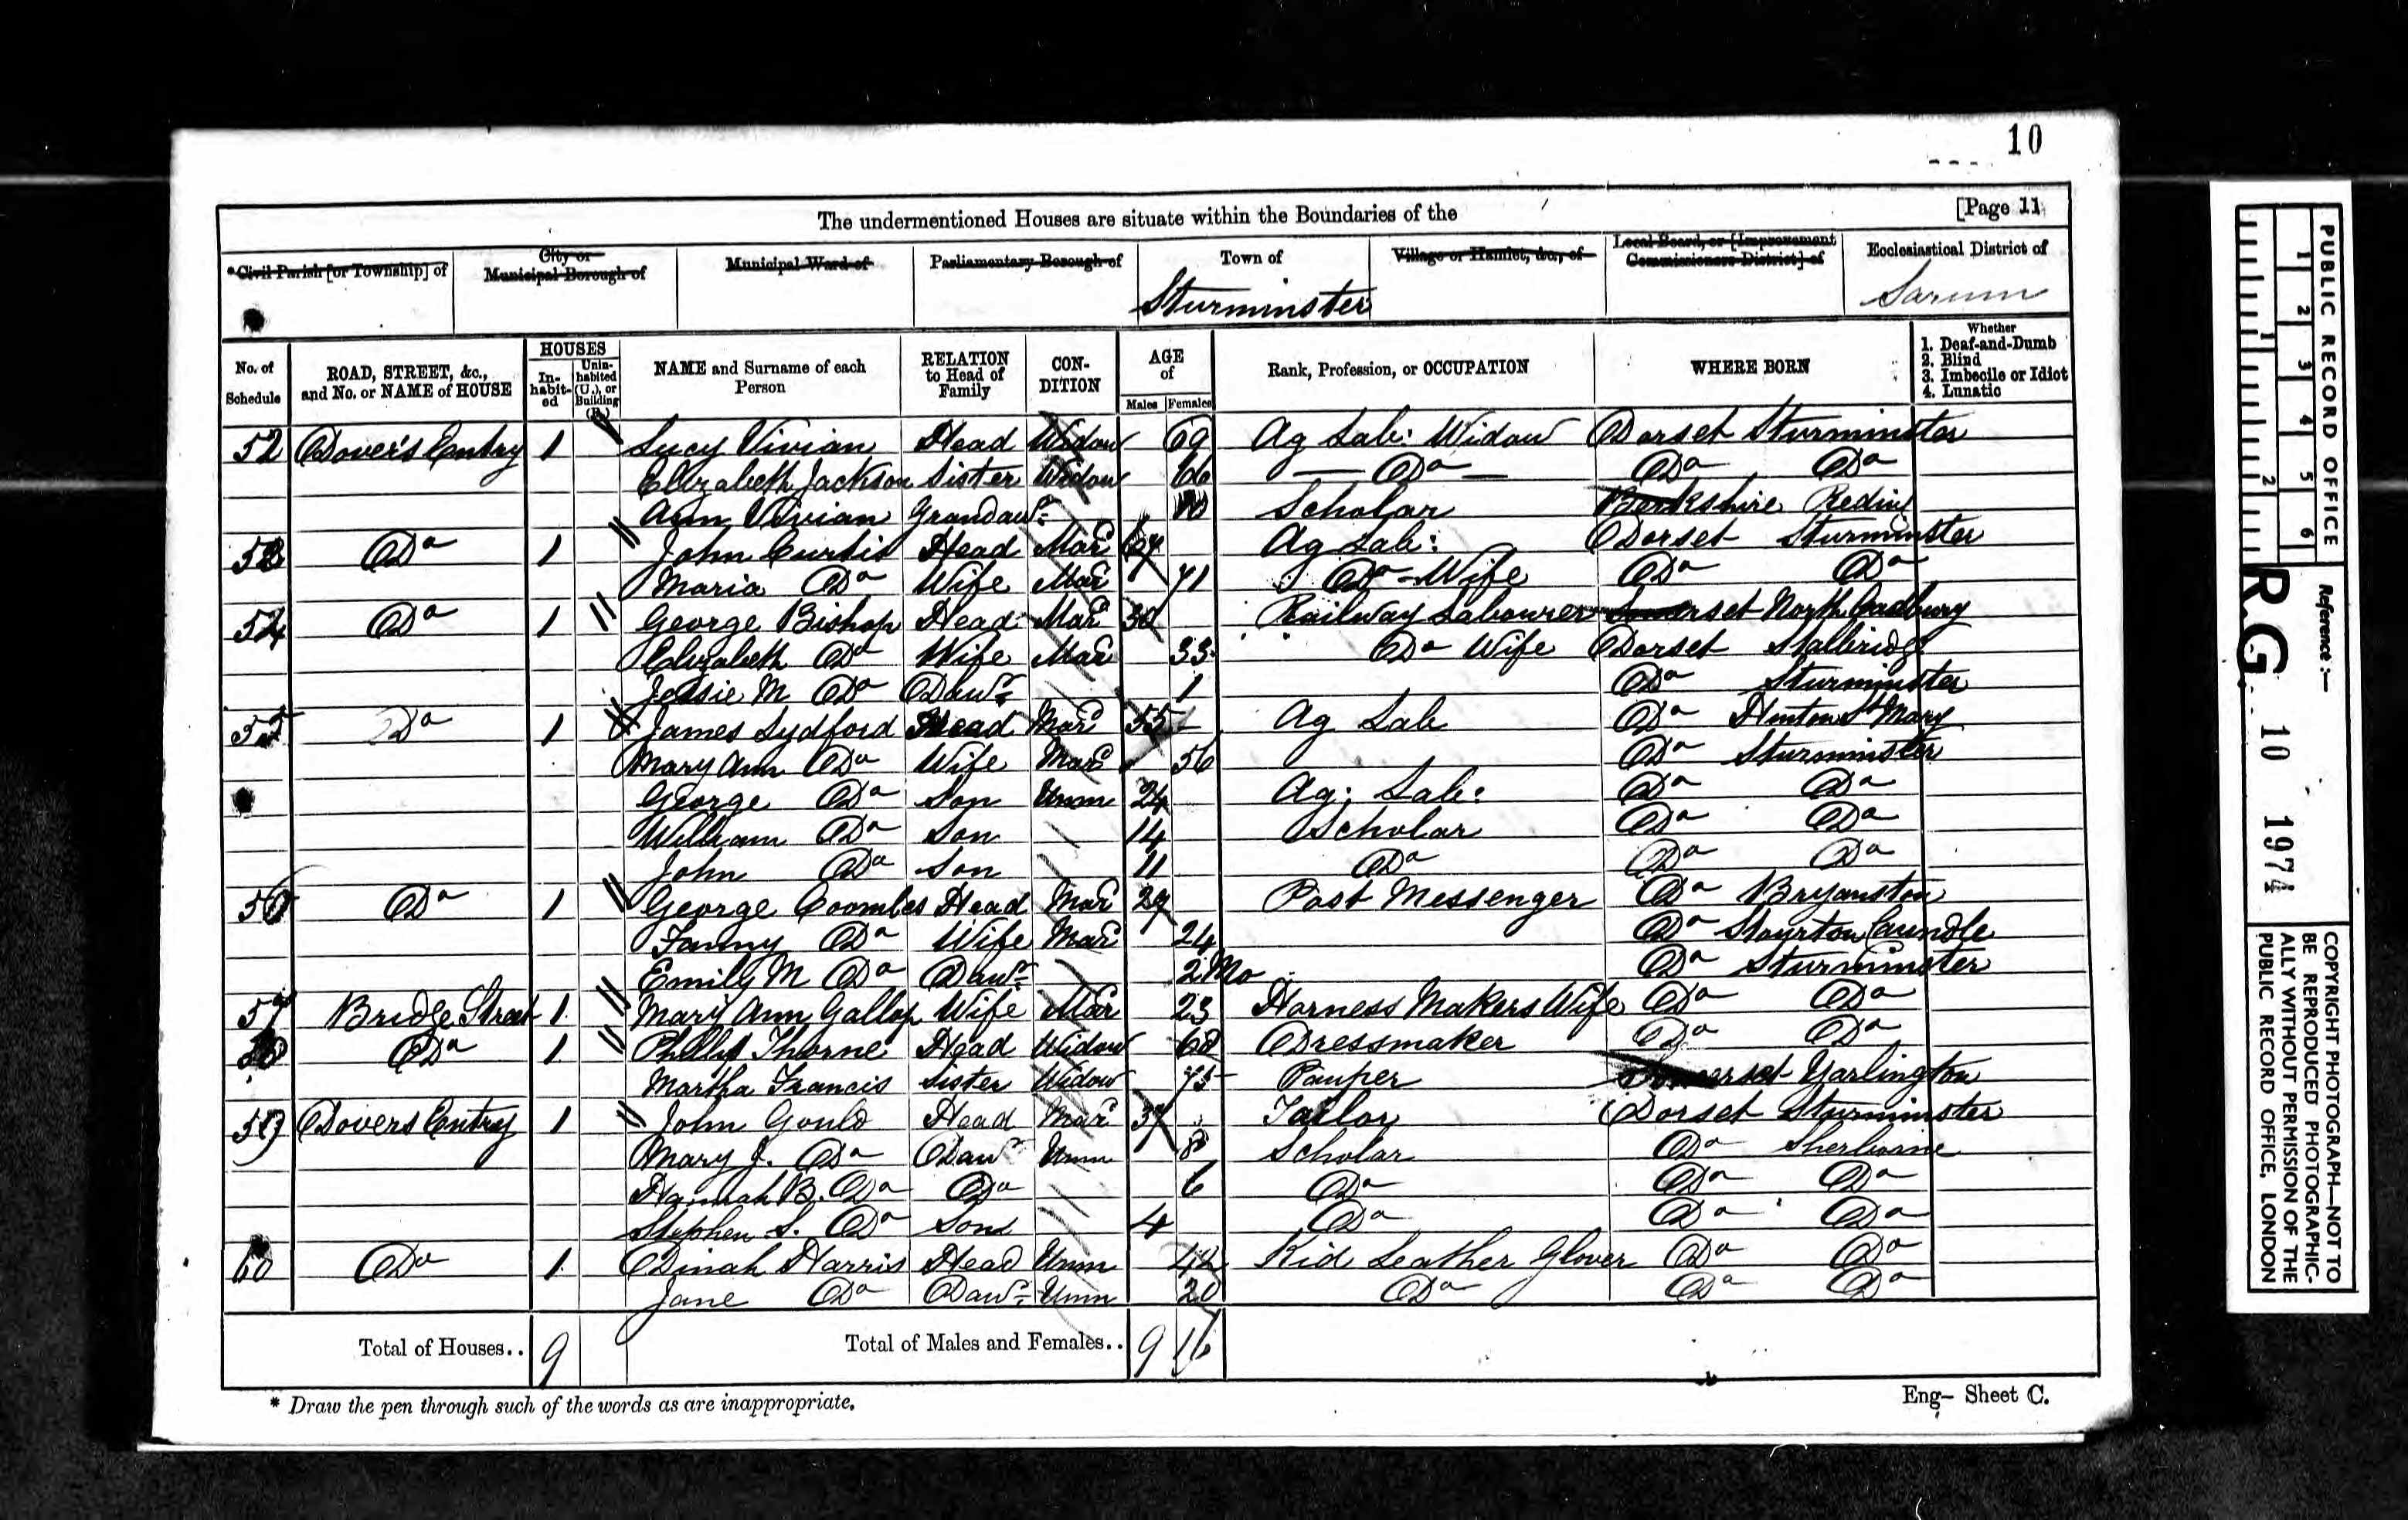 10
The undermentioned Houses are situate within the Boundaries of the [Page 11
*Civil Parish [or Township] of City or Municipal Borough of Municipal Ward of Parliamentary Borough of Town of Village or Hamlet, &c., of Local Board, or [Improvement Commissioners District] of Ecclesiastical District of
Sturminster Sarum
No. of Schedule ROAD, STREET, &c., and No. or NAME of HOUSE HOUSES Inhabited Uninhabited (U.), or Building (B.) NAME and Surname of each Person RELATION to Head of Family CONDITION AGE of Males Females Rank, Profession, or OCCUPATION WHERE BORN Whether 1. Deaf-and-Dumb 2. Blind 3. Imbecile or Idiot 4. Lunatic
52 Dover's Entry 1 Lucy Vivian Head Widow 69 Ag Lab: Widow Dorset Sturminster
Elizabeth Jackson Sister Widow 66 Do Do Do
Ann Vivian Grandaur 10 Scholar Berkshire Reding
53 Do 1 John Curtis Head Mar 67 Ag Lab: Dorset Sturminster
Maria Do Wife Mar 71 Do Wife Do Do
54 Do 1 George Bishop Head Mar 30 Railway Labourer Somerset North Cadbury
Elizabeth Do Wife Mar 33 Do Wife Dorset Stalbridge
Jessie M Do Daur 1 Do Sturminster
55 Do 1 James Lydford Head Mar 55 Ag Lab Do Hinton St Mary
Mary Ann Do Wife Mar 56 Do Sturminster
George Do Son Unm 24 Ag: Lab: Do Do
William Do Son 14 Scholar Do Do
John Do Son 11 Do Do Do
56 Do 1 George Coombes Head Mar 27 Post Messenger Do Bryanston
Fanny Do Wife Mar 24 Do Stourton Caundle
Emily M Do Daur 2 Mo Do Sturminster
57 Bridge Street 1 Mary Ann Gallop Wife Mar 23 Harness Makers Wife Do Do
58 Do 1 Phillis Thorne Head Widow 68 Dressmaker Do Do
Martha Francis Sister Widow 75 Pauper Somerset Yarlington
59 Dovers Entry 1 John Gould Head Mar 37 Tailor Dorset Sturminster
Mary J. Do Daur Unm 8 Scholar Do Sherborne
Hannah B. Do Do 6 Do Do Do
Stephen S. Do Son 4 Do Do Do
60 Do 1 Dinah Harris Head Unm 42 Kid Leather Glover Do Do
Jane Do Daur Unm 20 Do Do Do
Total of Houses.. 9 Total of Males and Females.. 9 16
* Draw the pen through such of the words as are inappropriate.
Eng- Sheet C.
PUBLIC RECORD OFFICE
1 2 3 4 5 6
1 2
Reference :-
RG. 10 1974
COPYRIGHT PHOTOGRAPH—NOT TO
BE REPRODUCED PHOTOGRAPHIC-
ALLY WITHOUT PERMISSION OF THE
PUBLIC RECORD OFFICE, LONDON